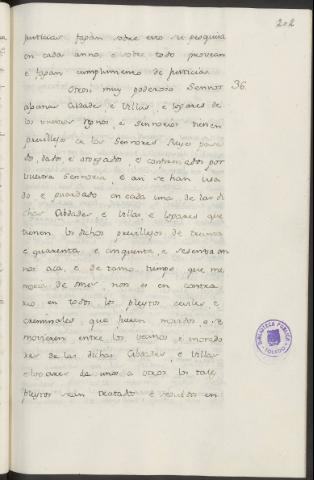 202
justicias fagan sobre esto su pesquisa
en cada anno, e sobre todo provean
e fagan cumplimiento de justicia.
Otrosi muy poderoso Sennor 36.
algunas Cibdades e Villas, e logares de
los vuestros rregnos, e sennorios tienen
previllejos de los Sennores Reyes pasa
do, dado, e otorgado, e confirmados por
vuestra Sennoria, e ansi se han usa
do e guardado en cada una de las di
chas Cibdades e Villas, e logares que
tienen los dichos previllejos de treinta
e quarenta e cinquenta, e sesenta an
nos aca, e de tanto tiempo que me
moria de omes, non es en contra
rio en todos los pleytos ceviles e
creminales que fueren movidos o se
movieren entre los vecinos e morado
res de las dichas Cibdades, e Villas
e logares de unos a otros los tales
pleytos sean tratados e seguidos en
BIBLIOTECA PÚBLICA
TOLEDO